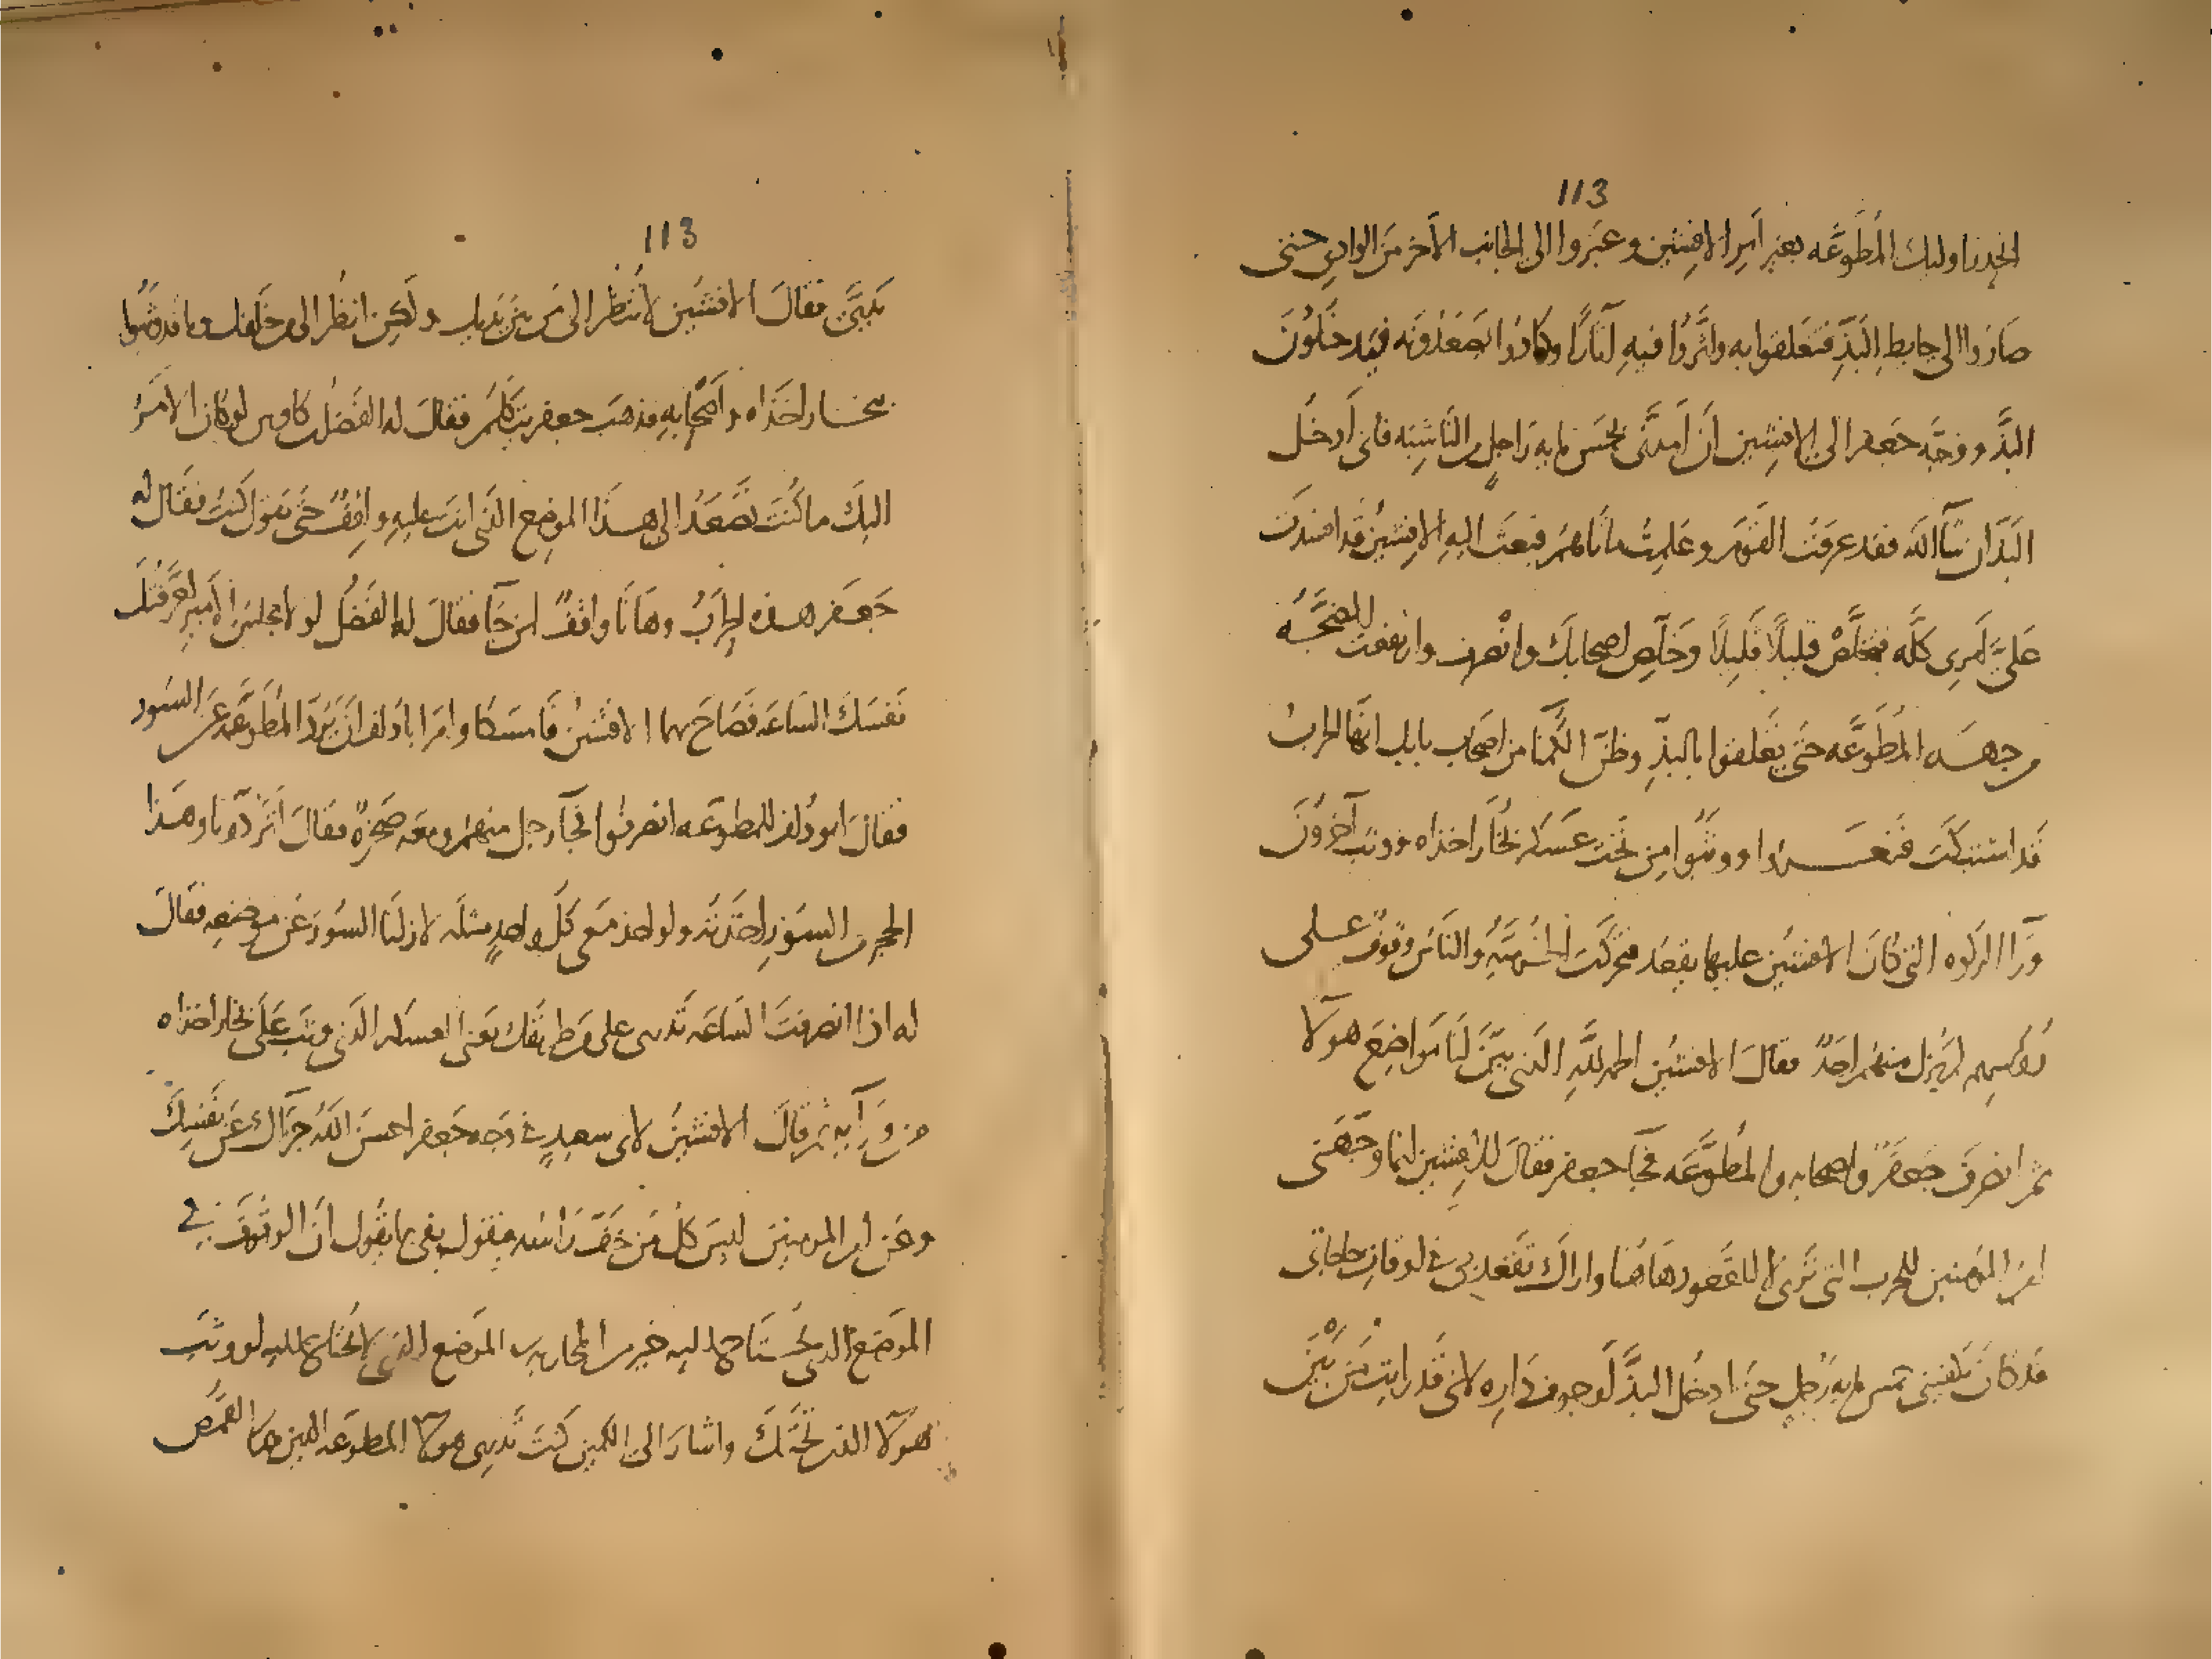 113
انحدر اوليك المطوعه بغير امر الافشين وعبروا الى الجانب الاخر من الوادي حتى
صاروا الى حايط البذ فتعلقوا به واثروا فيه آثارا وكادوا يصعدونه فيدخلون
البذ ووجه جعفر الى الافشين ان امدنى بخمس مايه راجل من الناشبه فانى ادخل
البذ ان شآ الله فقد عرفت القوم وعلمت ما ناهم فبعث اليه الافشين قد افسدت
على امرى كله فتخلص قليلا قليلا وخلص اصحابك وانصرف وارتفعت الضجه
من جهه المطوعه حتى تعلقوا بالبذ وظن الكمنا من اصحاب بابك انها الحراب
قد اشتبكت فنعروا ووثبوا من تحت عسكر بخاراخذاه ووثب آخرون
ورا الركوه التى كان الافشين عليها يقعد فتحركت الخرميه والناس وقوف على
روسهم لم يزل منهم احد فقال الافشين الحمد لله الذى بين لنا مواضع هولآ
ثم انصرف جعفر واصحابه والمطوعه فجآ جعفر فقال للافشين انما وجهنى
امير المومنين للحرب التى ترى لا للقعود هاهنا واراك تقعد بى فى اوقات حاجاتى
قد كان تكفينى خمس مايه رجل حتى ادخل البذ او جوف داره لانى قد رايت من بين
113
يديى فقال الافشين لا تنظر الى من بين يديك ولكن انظر الى من خلفك وما قد وثبوا
ببخاراخذاه واصحابه فذهب جعفر يتكلم فقال له الفضل كاوس لو كان الامر
اليك ما كنت تصعد الى هذا الموضع الذى انت عليه واقف حتى تقول كنت فقال له
جعفر هذه الحراب وها انا واقف لمن جآ فقال له الفضل لولا مجلس الامير لعرفتك
نفسك الساعه فصاح بهما الافشين فامسكا وامر ابا دلف ان يرد المطوعه عن السور
فقال ابو دلف للمطوعه انصرفوا فجآ رجل منهم ومعه صخره فقال اتردونا وهذا
الحجر من السور اخذته ولو اخذ مع كل واحد مثله لازلنا السور عن موضعه فقال
له اذا انصرفت الساعه تدرى على من طريقك يعنى العسكر الذى وثب على بخاراخذاه
من ورآيه ثم قال الافشين لابى سعيد فى وجه جعفر احسن الله جزآك عن نفسك
وعن امير المومنين ليس كل من خف راسه يقول يفى بما يقول ان الوقوف فى
الموضع الذى يحتاج اليه خير من المحاربه الموضع الذى لا يحتاج اليه لو وثب
هولآ الذين تحتك واشار الى الكمين كنت تدرى هولآ المطوعه الذين هم القمص